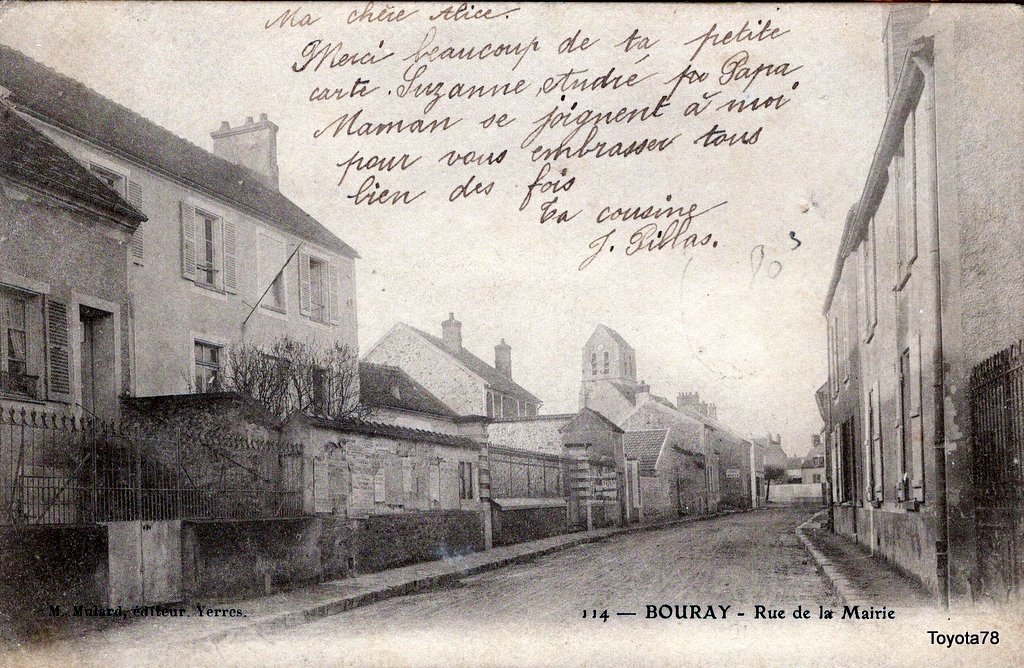 Ma chère Alice.
Merci beaucoup de ta petite
carte. Suzanne, André Papa
Maman se joignent à moi
pour vous embrasser tous
bien des fois
Ta cousine
J. Pillas.
M. Mulard, éditeur. Yerres.
114 — BOURAY - Rue de la Mairie
Toyota78